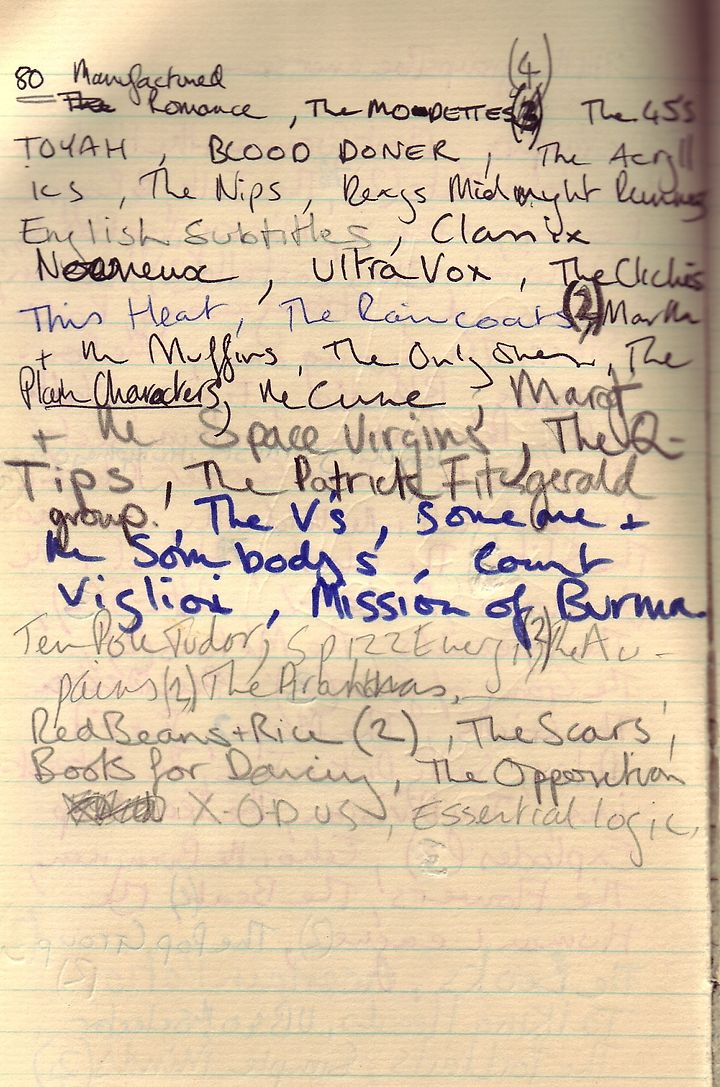 80 Manufactured
Romance, The MO-DETTES (4) The 45S
TOYAH, BLOOD DONER, The Acryll
ics, The Nips, Dexys Midnight Runners
English Subtitles, Classix
Nouveux, UltraVox, The Clichés
This Heat, The Raincoats (2), Martha
+ the Muffins, The Only Ones, The
Plain Characters, the Cure, Margt
+ the Space Virgins, The Q-
Tips, The Patrick Fitzgerald
group, The V's, Someone +
the Sombody's, Count
Viglioni, Mission of Burma.
Ten Pole Tudor, Spizz Energi (2) The Au-
pairs (2) The
Red Beans + Rice (2), The Scars,
Books for Dancing, The Opposition
X-O-DUS, Essential logic,